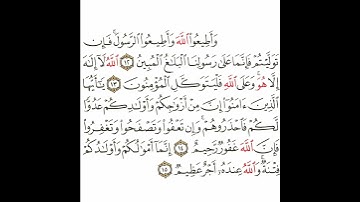 وَأَطِيعُوا۟ ٱللَّهَ وَأَطِيعُوا۟ ٱلرَّسُولَ ۚ فَإِن
تَوَلَّيْتُمْ فَإِنَّمَا عَلَىٰ رَسُولِنَا ٱلْبَلَٰغُ ٱلْمُبِينُ ١٢ ٱللَّهُ لَآ إِلَٰهَ
إِلَّا هُوَ ۚ وَعَلَى ٱللَّهِ فَلْيَتَوَكَّلِ ٱلْمُؤْمِنُونَ ١٣ يَٰٓأَيُّهَا
ٱلَّذِينَ ءَامَنُوٓا۟ إِنَّ مِنْ أَزْوَٰجِكُمْ وَأَوْلَٰدِكُمْ عَدُوًّا
لَّكُمْ فَٱحْذَرُوهُمْ ۚ وَإِن تَعْفُوا۟ وَتَصْفَحُوا۟ وَتَغْفِرُوا۟
فَإِنَّ ٱللَّهَ غَفُورٌ رَّحِيمٌ ١٤ إِنَّمَآ أَمْوَٰلُكُمْ وَأَوْلَٰدُكُمْ
فِتْنَةٌ ۚ وَٱللَّهُ عِندَهُۥٓ أَجْرٌ عَظِيمٌ ١٥